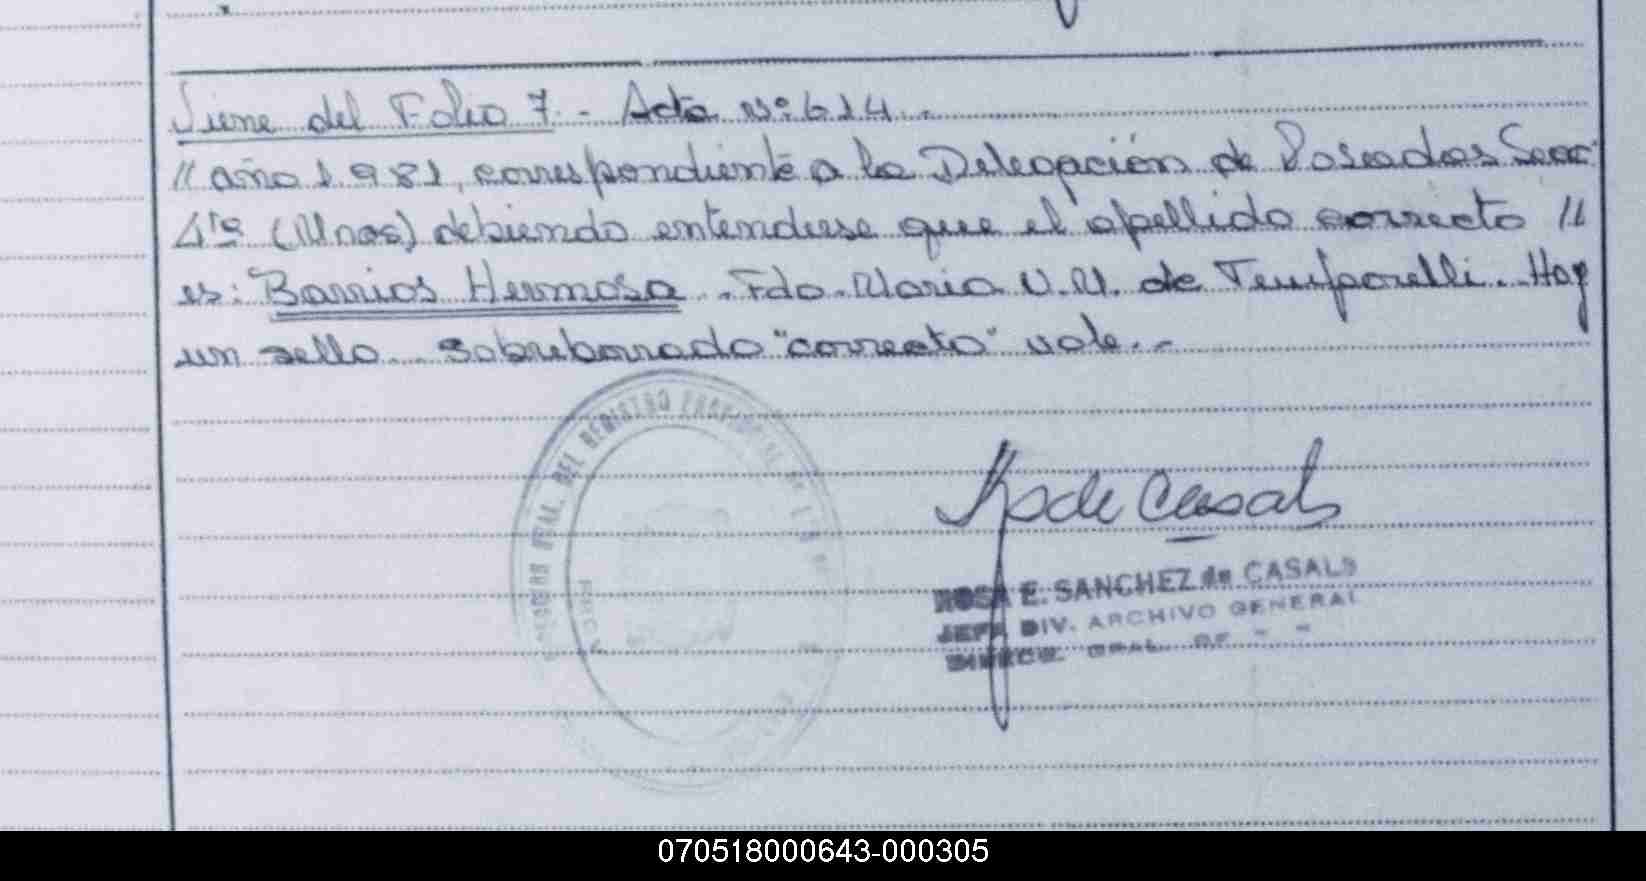 Viene del Folio 7.- Acta Nº 614.-
// año 1981, correspondiente a la Delegación de Posadas Secc.
4ta (Mnes) debiendo entenderse que el apellido correcto //
es: Barrios Hermosa .-Fdo. Maria V.M. de Temporelli.-Hay
un sello.- Sobreborrado "correcto" vale.-
DEL REGISTRO PROVINCIAL DE LAS
R de Casals
ROSA E. SANCHEZ de CASALS
JEFA DIV. ARCHIVO GENERAL
DIRECC. GRAL. DE
070518000643-000305